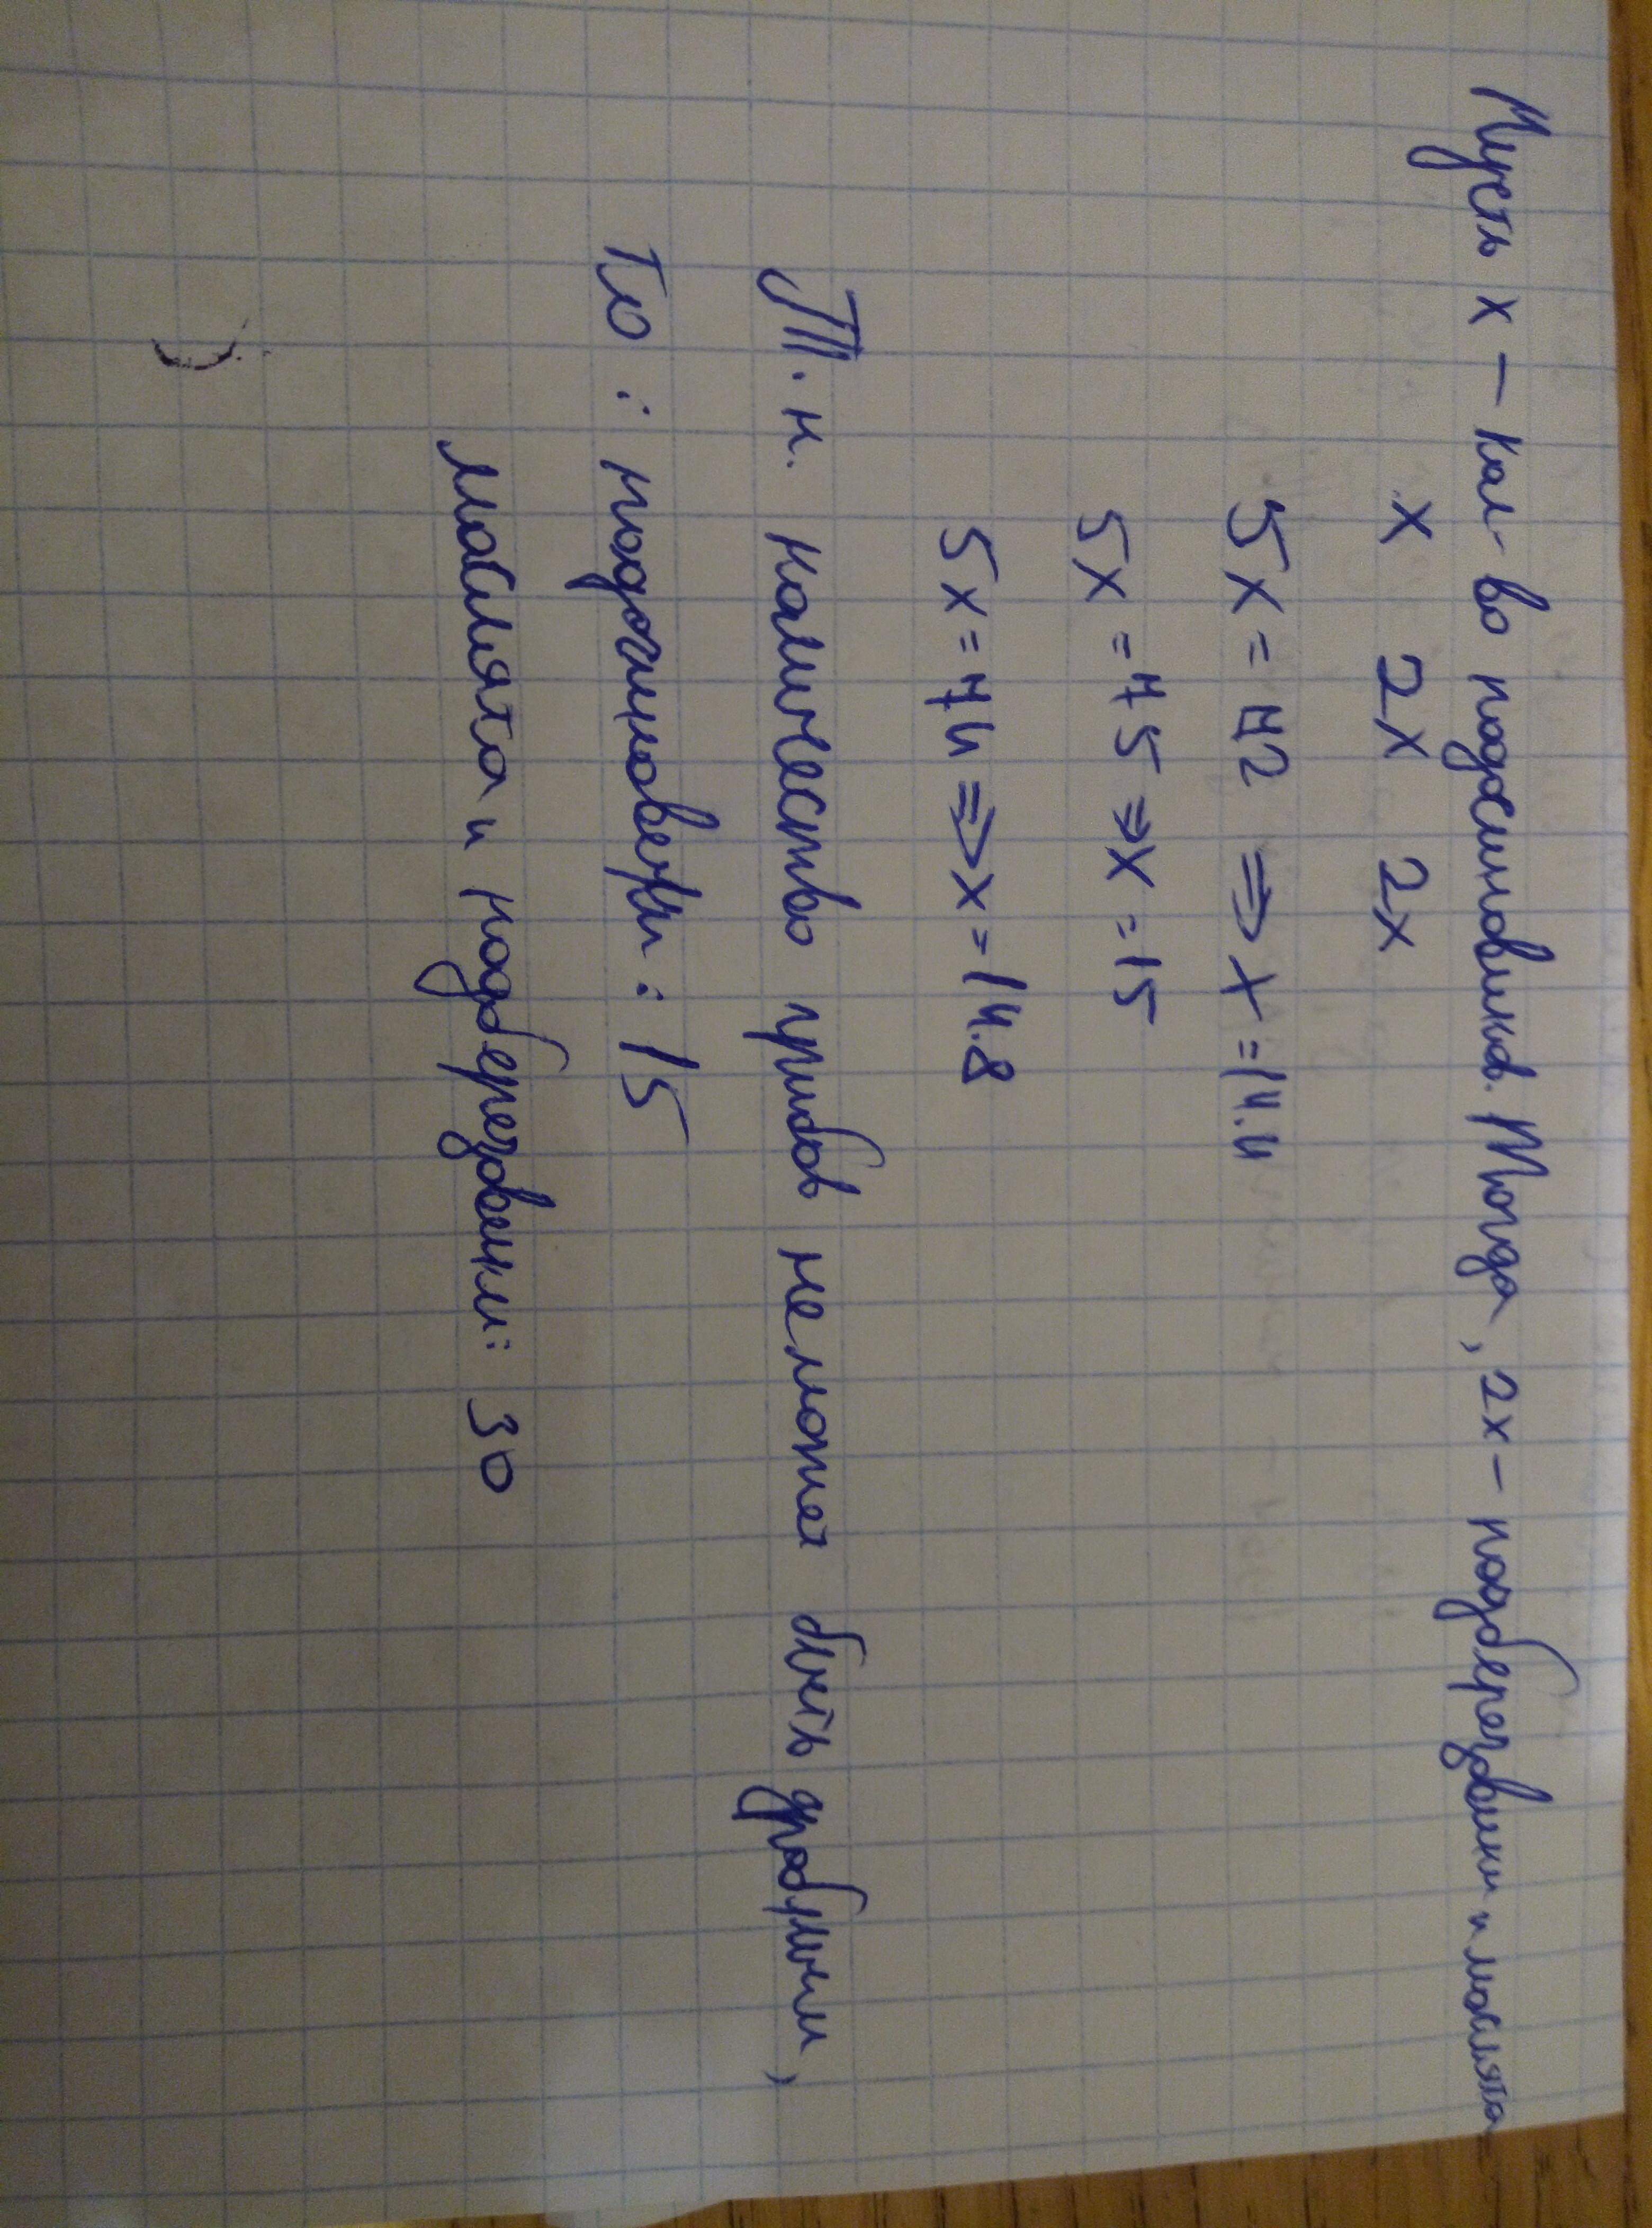 Пусть x – кол-во подосиновиков. Тогда, 2x – подберезовики и маслята
x 2x 2x
5x = 72 ⇒ x = 14.4
5x = 75 ⇒ x = 15
5x = 74 ⇒ x = 14.8
Т.к. количество грибов не может быть дробным,
то: подосиновики: 15
маслята и подберезовики: 30